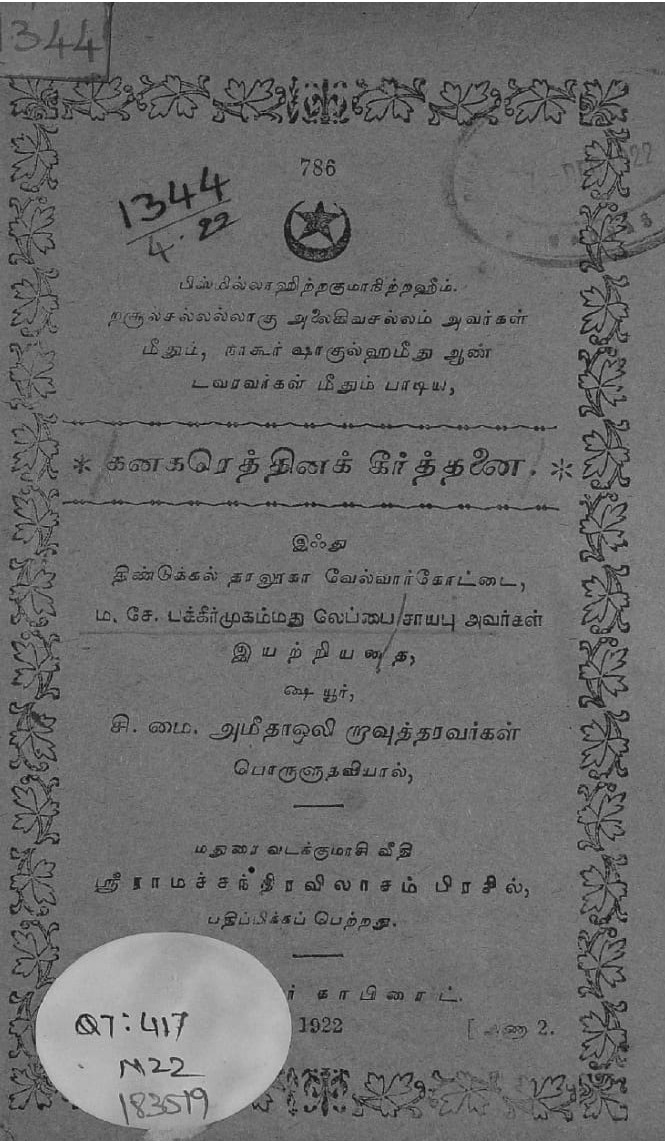 1344
786
1344
4.22
பிஸ்மில்லாஹிற்றகுமாநிற்றஹீம்.
றசூல்சல்லல்லாகு அலைகிவசல்லம் அவர்கள்
மீதும், நாகூர் ஷாகுல்ஹமீது ஆண்
டவரவர்கள் மீதும் பாடிய,
* கனகரெத்தினக் கீர்த்தனை. *
இஃது
திண்டுக்கல் தாலூகா வேல்வார்கோட்டை,
ம. சே. பக்கீர்முகம்மது லேப்பை சாயபு அவர்கள்
இயற்றியதை,
ஷை யூர்,
சி. மை. அமீதாஒலி றாவுத்தரவர்கள்
பொருளுதவியால்,
மதுரை வடக்குமாசி வீதி
ஸ்ரீராமச்சந்திரவிலாசம் பிரசில்,
பதிப்பிக்கப் பெற்றது.
காபிரைட்.
1922 [அணா 2.
Q7:417
M22
183519